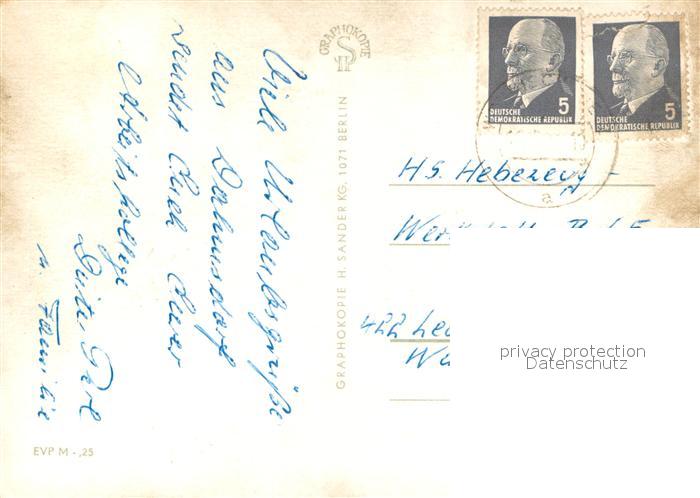 Viele Urlaubsgrüße
aus Dahmsdorf
sendet Euch Euer
Arbeitskollege
u. Familie
GRAPHOKOPIE
HS
GRAPHOKOPIE H. SANDER KG. 1071 BERLIN
EVP M -,25
DEUTSCHE
DEMOKRATISCHE REPUBLIK
5
DEUTSCHE
DEMOKRATISCHE REPUBLIK
5
a
HS. Hebezeug-
422
privacy protection
Datenschutz